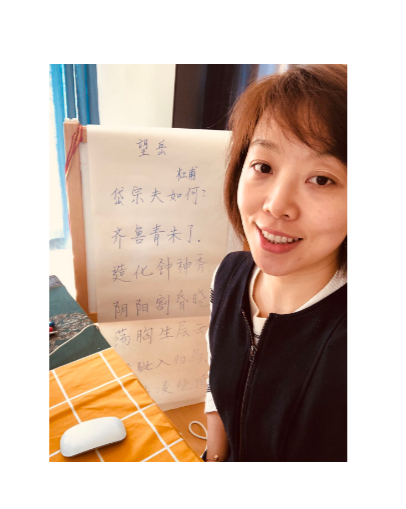 望岳
杜甫
岱宗夫如何?
齐鲁青未了。
造化钟神秀
阴阳割昏晓
荡胸生层云
眦入归鸟